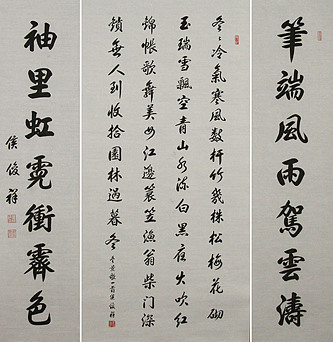 筆端風雨駕雲濤
冬〻冷氣寒風數杆竹幾株松梅花砌
玉瑞雪飄空青山水凍白黑夜火吹紅
錦帳歌舞美女江邊蓑笠漁翁柴門深
鎖無人到收拾園林過暮冬
袖里虹霓衝霽色
侯俊祥